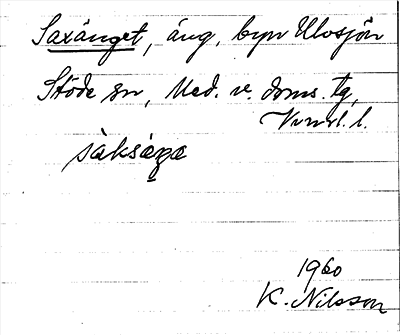 Saxänget, äng, byn Ulvsjön
Stöde sn, Med. v. doms. tg,
Vnrl. l.
sàksæ̀ŋæ
1960
K. Nilsson